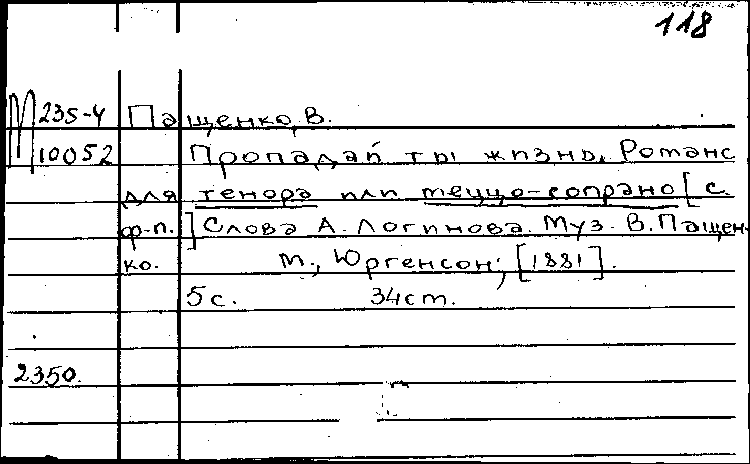 118
М 235-4 Пащенко, В.
10052 Пропадай ты жизнь. Романс
для тенора или меццо-сопрано [с.
ф-п.] Слова А. Логинова. Муз. В. Пащен-
ко. М., Юргенсон, [1881].
5 с. 34 ст.
2350.